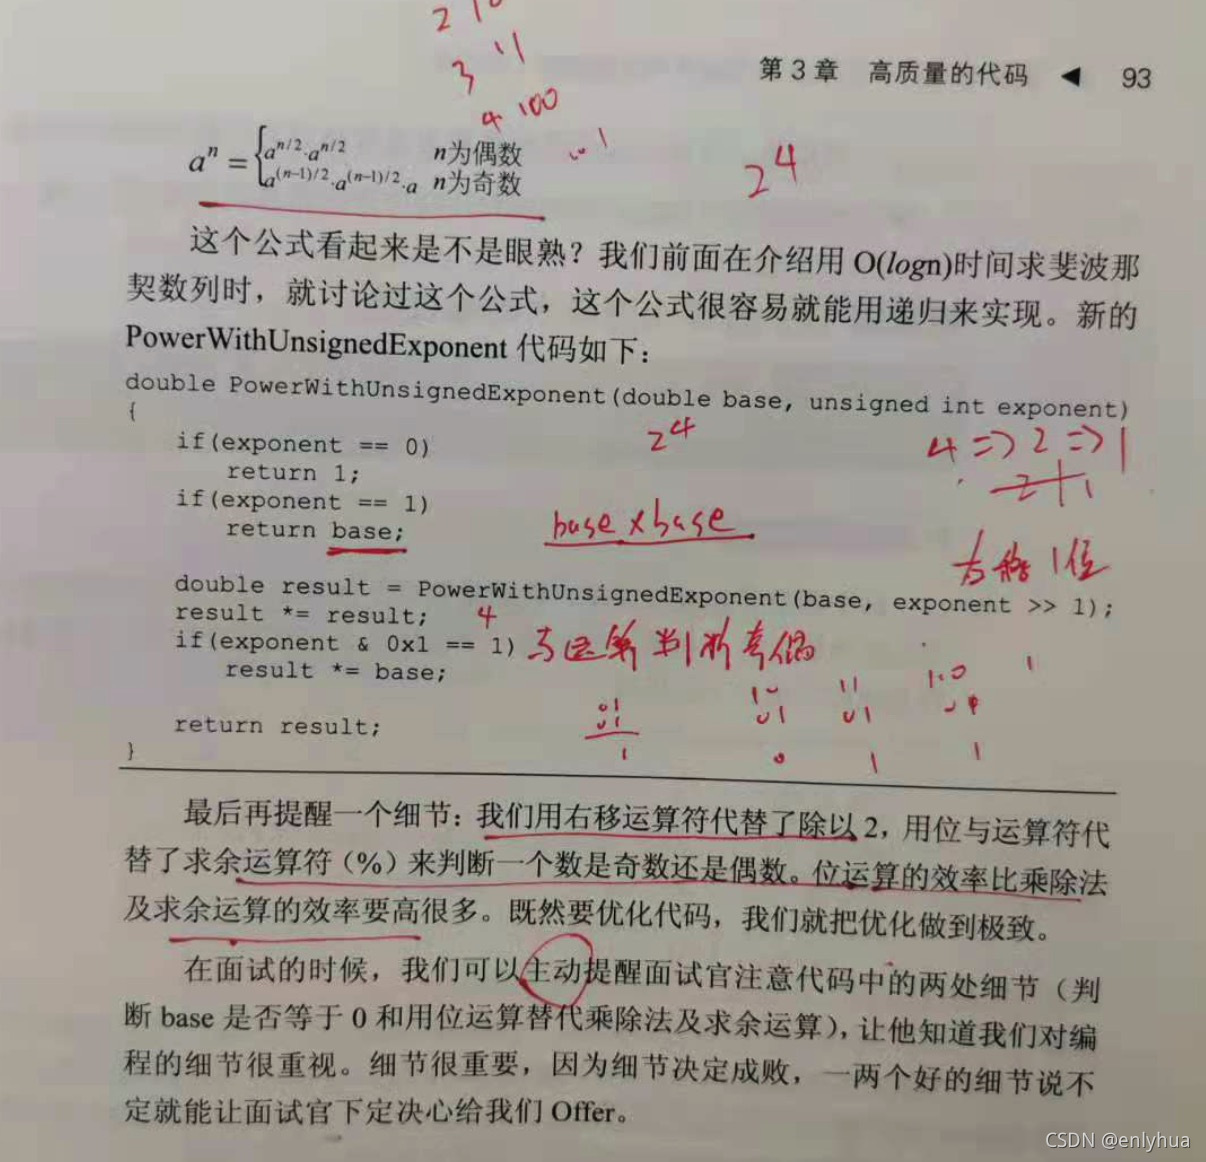 2 10
3 11
第3章 高质量的代码 ◀ 93
4 100
aⁿ = { a^{n/2}·a^{n/2} n为偶数
a^{(n-1)/2}·a^{(n-1)/2}·a n为奇数
2⁴
这个公式看起来是不是眼熟？我们前面在介绍用 O(logn)时间求斐波那
契数列时，就讨论过这个公式，这个公式很容易就能用递归来实现。新的
PowerWithUnsignedExponent 代码如下：
double PowerWithUnsignedExponent(double base, unsigned int exponent)
{
if(exponent == 0) 2⁴ 4 => 2 => 1
return 1;
if(exponent == 1)
return base; base x base
右移1位
double result = PowerWithUnsignedExponent(base, exponent >> 1);
result *= result; 4
if(exponent & 0x1 == 1) 与运算 判断奇偶
result *= base;
01 10 11
01 01 01
return result;
1 0 1 1
}
最后再提醒一个细节：我们用右移运算符代替了除以 2，用位与运算符代
替了求余运算符（%）来判断一个数是奇数还是偶数。位运算的效率比乘除法
及求余运算的效率要高很多。既然要优化代码，我们就把优化做到极致。
在面试的时候，我们可以主动提醒面试官注意代码中的两处细节（判
断 base 是否等于 0 和用位运算替代乘除法及求余运算），让他知道我们对编
程的细节很重视。细节很重要，因为细节决定成败，一两个好的细节说不
定就能让面试官下定决心给我们 Offer。
CSDN @enlyhua